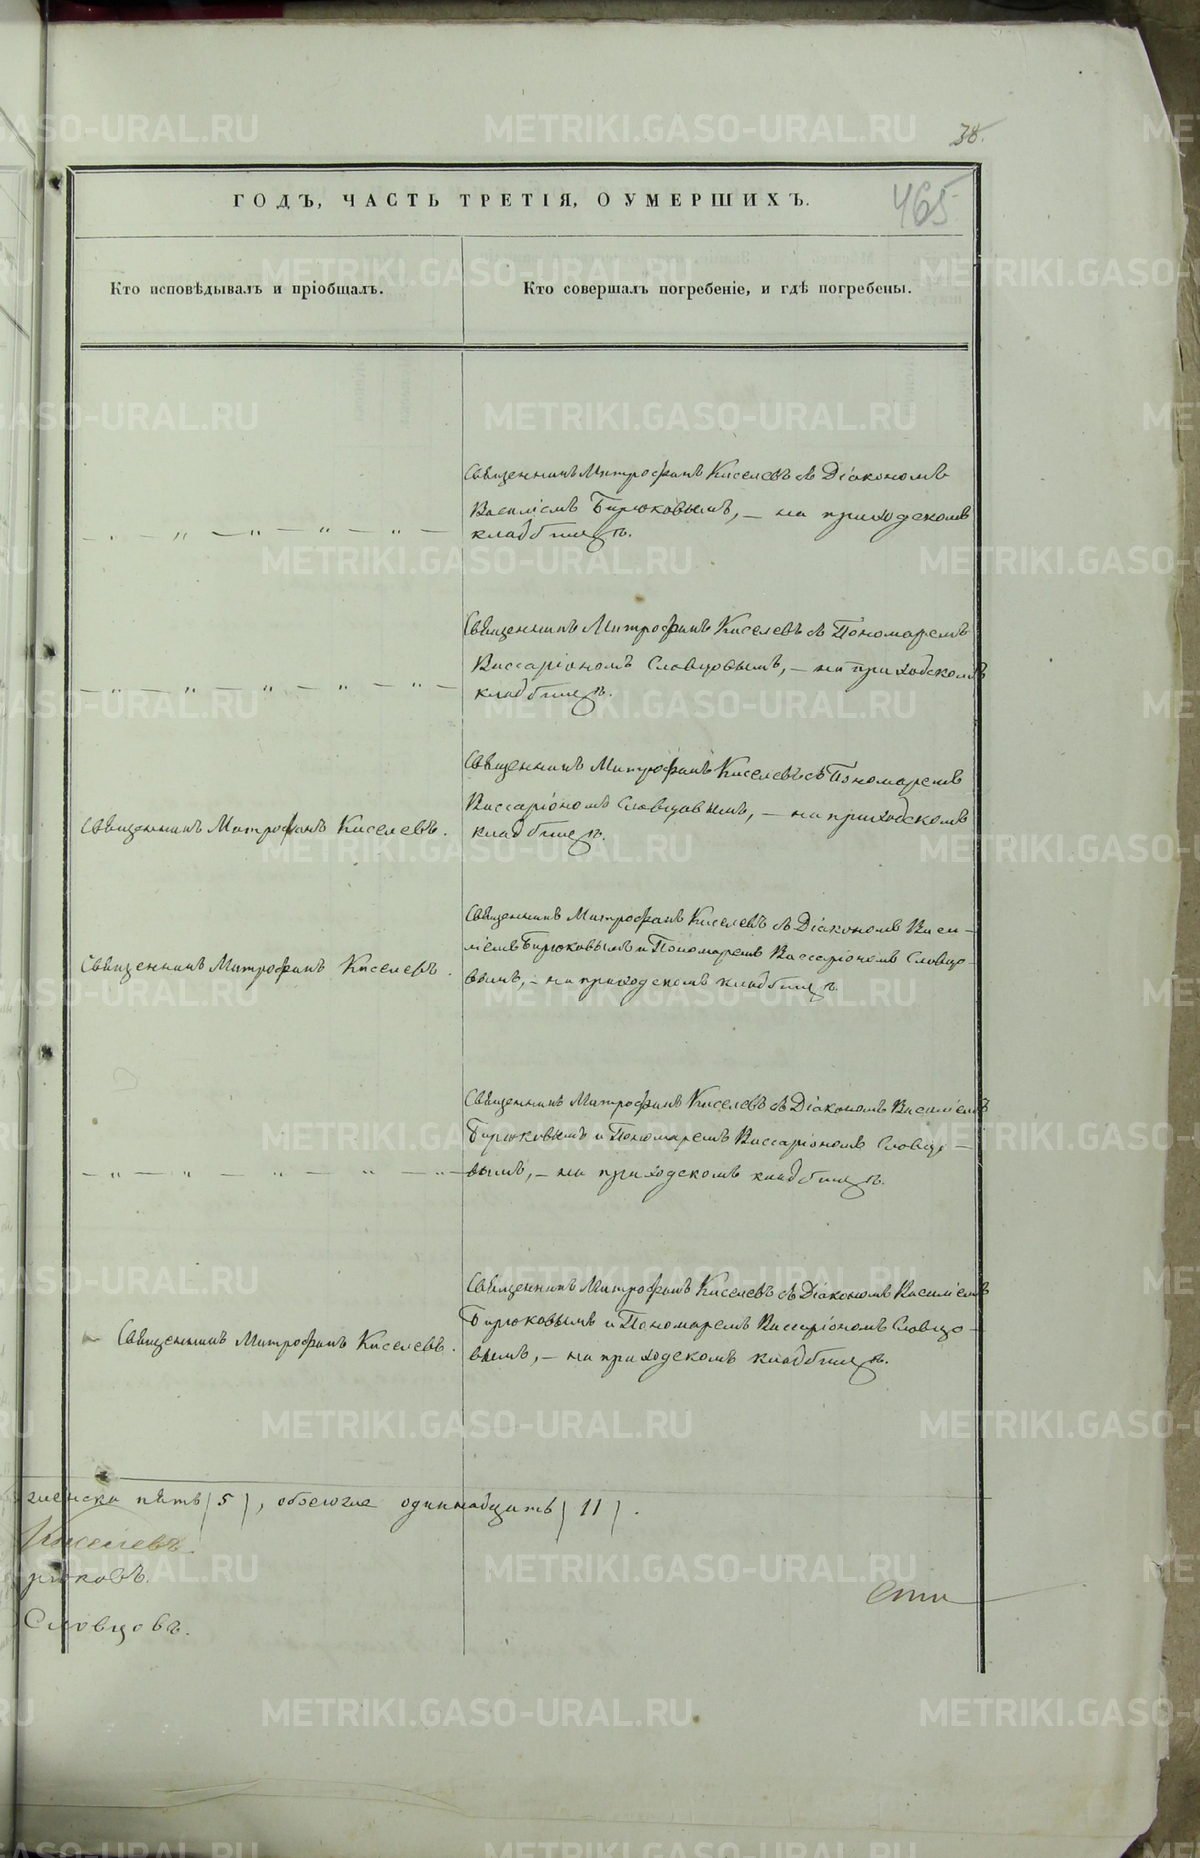 38.
ГОДЪ, ЧАСТЬ ТРЕТІЯ, О УМЕРШИХЪ.
465
Кто исповѣдывалъ и пріобщалъ.
Кто совершалъ погребеніе, и гдѣ погребены.
Священникъ Митрофанъ Киселевъ съ Діакономъ
Василіемъ Бирюковымъ, — на приходскомъ
кладбищѣ.
Священникъ Митрофанъ Киселевъ съ Пономаремъ
Виссаріономъ Словцовымъ, — на приходскомъ
кладбищѣ.
Священникъ Митрофанъ Киселевъ.
Священникъ Митрофанъ Киселевъ съ Пономаремъ
Виссаріономъ Словцовымъ, — на приходскомъ
кладбищѣ.
Священникъ Митрофанъ Киселевъ.
Священникъ Митрофанъ Киселевъ съ Діакономъ Васи-
ліемъ Бирюковымъ и Пономаремъ Виссаріономъ Словцо-
вымъ, — на приходскомъ кладбищѣ.
Священникъ Митрофанъ Киселевъ съ Діакономъ Василіемъ
Бирюковымъ и Пономаремъ Виссаріономъ Словцо-
вымъ, — на приходскомъ кладбищѣ.
Священникъ Митрофанъ Киселевъ.
Священникъ Митрофанъ Киселевъ съ Діакономъ Василіемъ
Бирюковымъ и Пономаремъ Виссаріономъ Словцо-
вымъ, — на приходскомъ кладбищѣ.
женска пять (5), обоего одиннадцать (11).
Киселевъ.
рюковъ.
Словцовъ.
METRIKI.GASO-URAL.RU